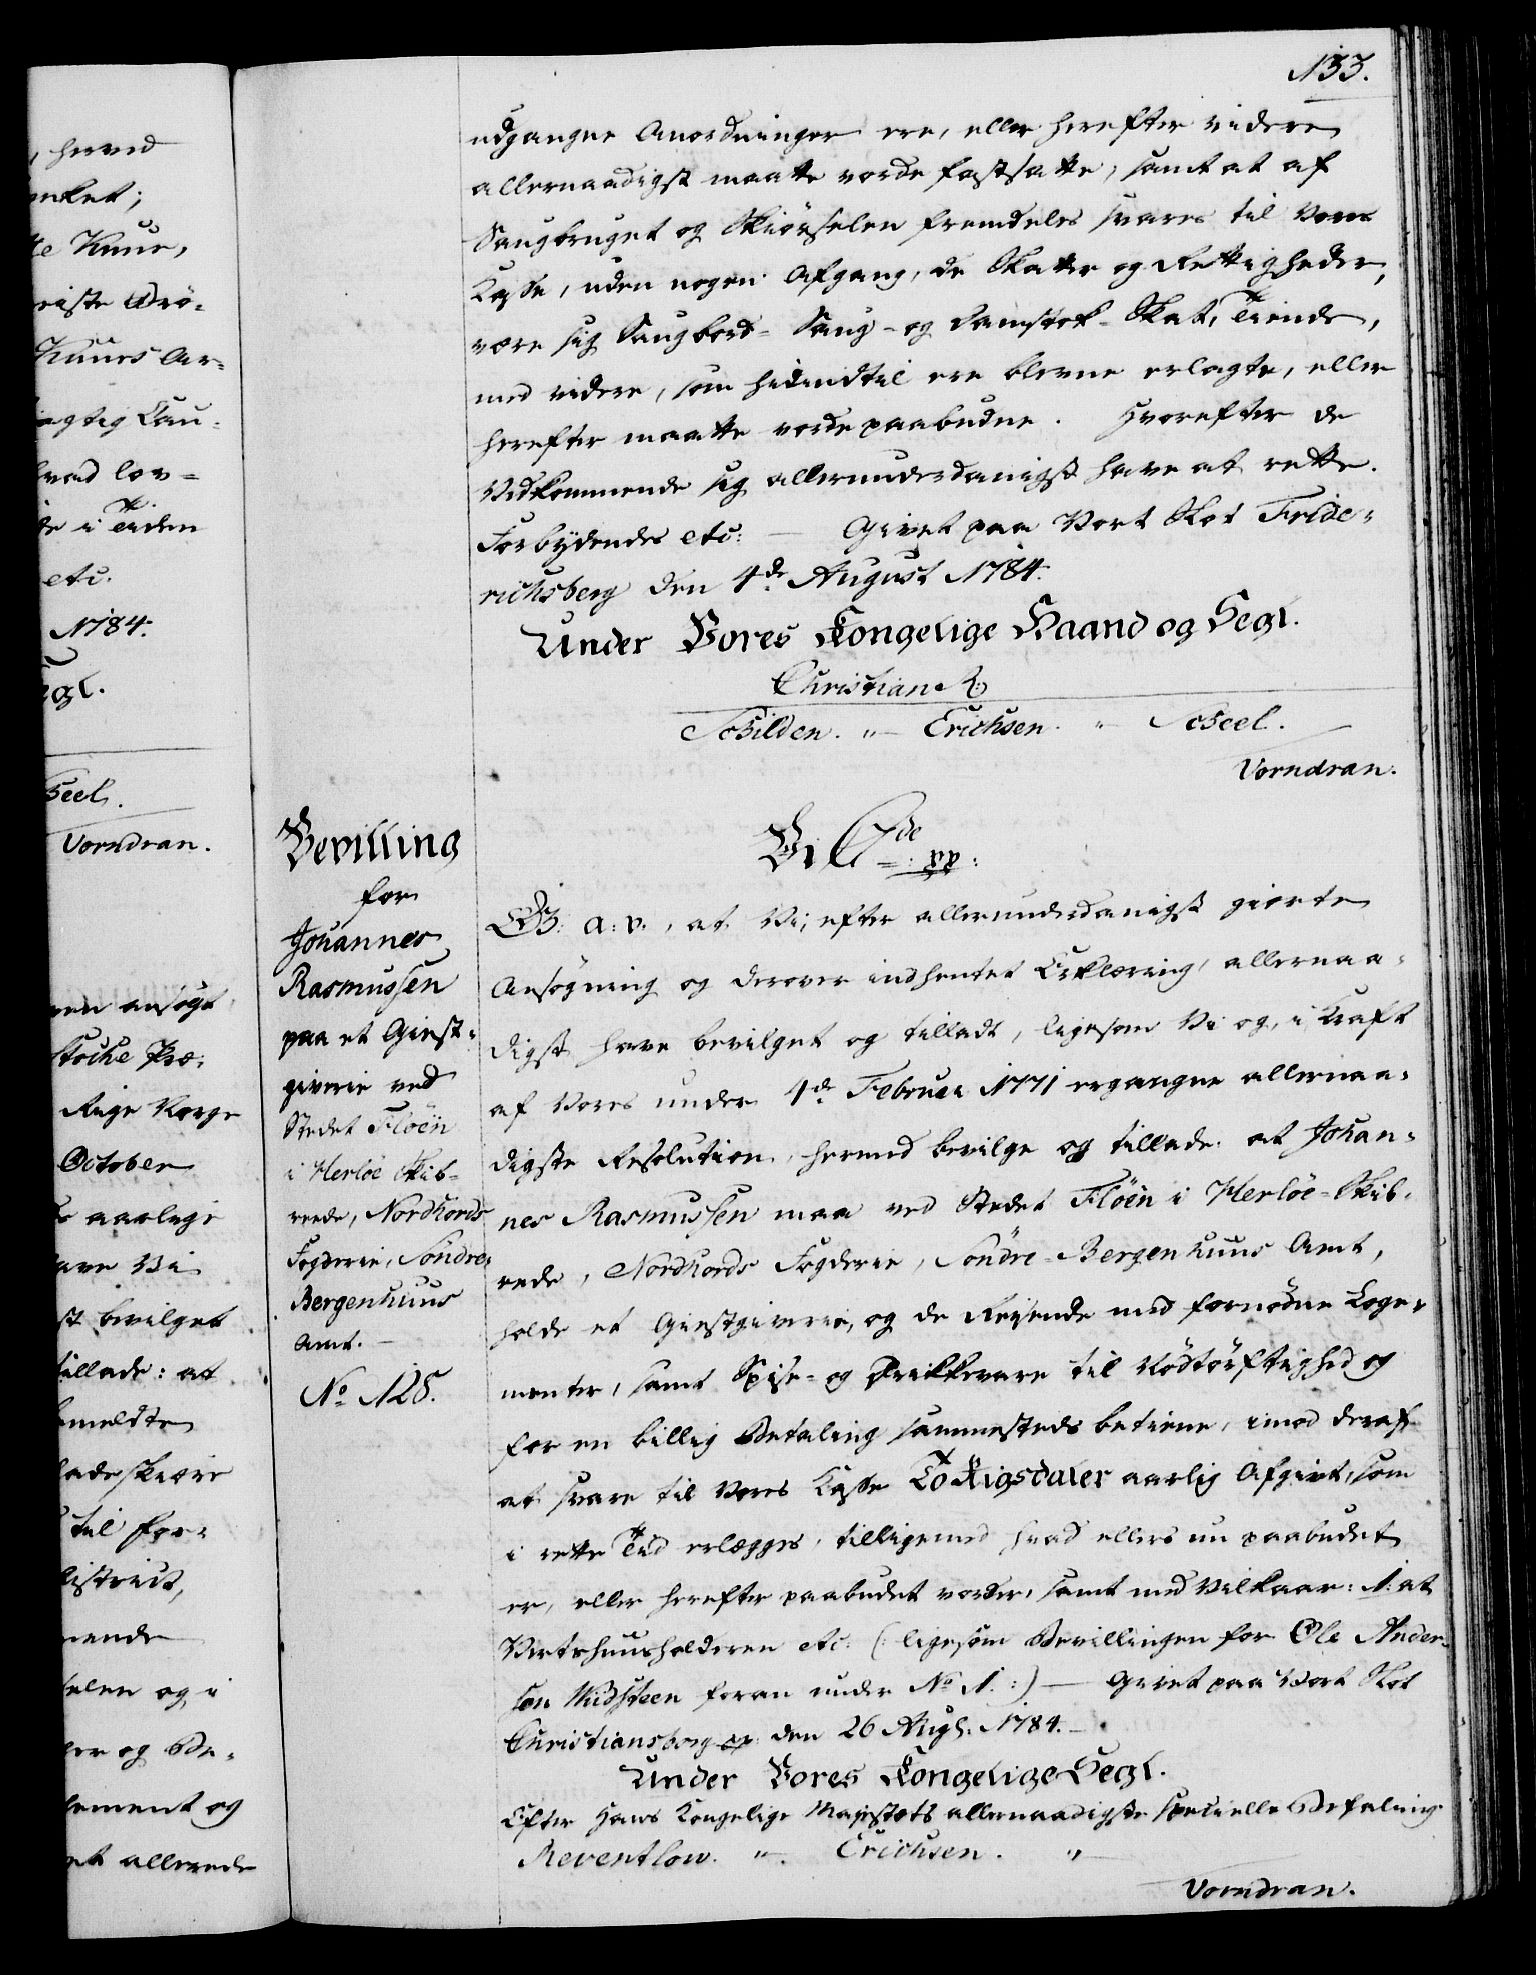 133.
udgangne Anordninger ere, eller herefter videre
allernaadigst maatte vorde fastsatte, samt at af
Saugbruget og Skiørselen fremdeles svares til Vores
Kasse, uden nogen Afgang, de Skatter og Rettigheder,
være sig Saugbord- Saug- og Damstok- Skat, Tiende,
med videre, som hidindtil ere blevne erlagte, eller
herefter maatte vorde paabudne. Hvorefter de
Vedkommende sig allerunderdanigst have at rette.
Forbydendes etc: — Givet paa Vort Slot Fride-
richsberg den 4de August 1784.
Under Vores Kongelige Haand og Segl.
Christian R.
Schilden. " — Erichsen. " Scheel.
Vorndran.
Bevilling
for
Johannes
Rasmussen
paa et Giest-
giverie ved
Stedet Flöen
i Herlöe Skib-
rede, Nordhords
Fogderie, Söndre
Bergenhuus
Amt. —
No 128.
Vi C 7de pp:
G: a: v., at Vi, efter allerunderdanigst giorte
Ansøgning og derover indhentet Erklæring, allernaa-
digst have bevilget og tilladt, ligesom Vi og, i Kraft
af Vores under 4de Februar 1771 ergangne allernaa-
digste Resolution, hermed bevilge og tillade: at Johan-
nes Rasmussen maa ved Stedet Flöen i Herlöe-Skib-
rede, Nordhords Fogderie, Söndre-Bergenhuus Amt,
holde et Giestgiverie, og de Reisende med fornødne Loge-
menter, samt Spise- og Drikkevare til Nödtörftighed og
for en billig Betaling sammesteds betiene, imod deraf
at svare til Vores Kasse To Rigsdaler aarlig Afgivt, som
i rette Tid erlægges, tilligemed hvad ellers nu paabudet
er, eller herefter paabudet vorder, samt med Vilkaar: 1. at
Vertshuusholderen etc: (: ligesom Bevillingen for Ole Ander-
sen Midsteen foran under No 1. :) — Givet paa Vort Slot
Christiansborg den 26 Augs. 1784. —
Under Vores Kongelige Segl.
Efter Hans Kongelige Majestæts allernaadigste specielle Befaling
Reventlow. " — Erichsen. "
Vorndran.